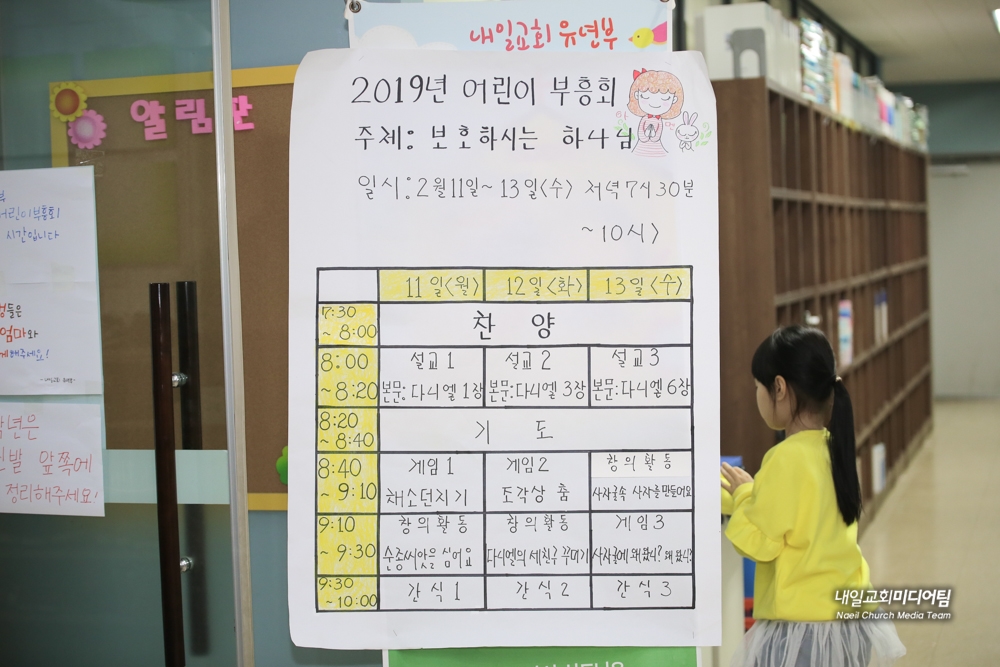 내일교회 유년부
알림판
2019년 어린이 부흥회
주제: 보호하시는 하나님
일시: 2월 11일~ 13일<수> 저녁 7시 30분
~10시>
11일<월> 12일<화> 13일<수>
7:30 ~ 8:00 찬 양
8:00 ~ 8:20 설교 1 설교 2 설교 3
본문: 다니엘 1장 본문: 다니엘 3장 본문: 다니엘 6장
8:20 ~ 8:40 기 도
8:40 ~ 9:10 게임 1 게임 2 창의활동
채소던지기 조각상 춤 사자굴속 사자를만들어요
9:10 ~ 9:30 창의활동 창의활동 게임 3
순종씨앗을 심어요 다니엘의 세친구 꾸미기 사자굴에 왜왔니? 왜왔니?
9:30 ~ 10:00 간식 1 간식 2 간식 3
어린이부흥회
시간입니다
엄마와
앞쪽에
정리해주세요!
내일교회미디어팀
Naeil Church Media Team